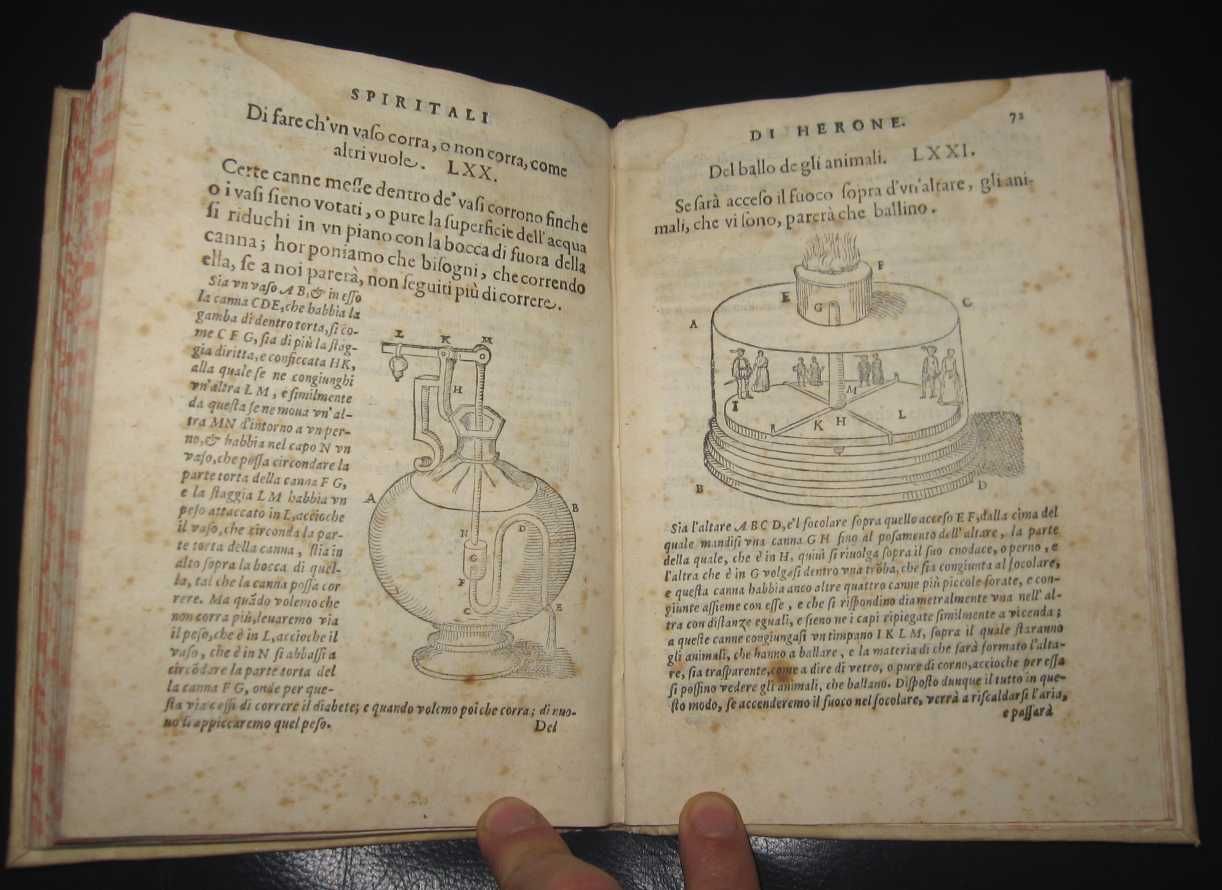 SPIRITALI
Di fare ch'vn vaſo corra, o non corra, come
altri vuole. LXX.
Certe canne meſſe dentro de' vaſi corrono finche
o i vaſi ſieno votati, o pure la ſuperficie dell'acqua
ſi riduchi in vn piano con la bocca di fuora della
canna; hor poniamo che biſogni, che correndo
ella, ſe a noi parerà, non ſeguiti più di correre.
Sia vn vaſo A B, & in eſſo
la canna CDE, che habbia la
gamba di dentro torta, ſi co-
me C F G, ſia di più la ſtag-
gia diritta, e conficcata HK,
alla quale ſe ne congiunghi
vn'altra L M, e ſimilmente
da queſta ſe ne moua vn'al-
tra MN d'intorno a vn per-
no, & habbia nel capo N vn
vaſo, che poſſa circondare la
parte torta della canna F G,
e la ſtaggia L M habbia vn
peſo attaccato in L, accioche
il vaſo, che circonda la par-
te torta della canna, ſtia in
alto ſopra la bocca di quel-
la, tal che la canna poſſa cor
rere. Ma quãdo volemo che
non corra più, leuaremo via
il peſo, che è in L, accioche il
vaſo, che è in N ſi abbaſſi a
circõdare la parte torta del
la canna F G, onde per que-
ſta via ceſſi di correre il diabete; e quando volemo poi che corra; di nuo-
uo li appiccaremo quel peſo.
Del
L K M
H
A
B
N
D
G
F
C
E
DI HERONE. 72
Del ballo de gli animali. LXXI.
Se ſarà acceſo il fuoco ſopra d'vn'altare, gli ani-
mali, che vi ſono, parerà che ballino.
F
E
G
C
A
M
I
L
K H
B
D
Sia l'altare A B C D, e'l focolare ſopra quello acceſo E F, dalla cima del
quale mandiſi vna canna G H ſino al poſamento dell'altare, la parte
della quale, che è in H, quiui ſi riuolga ſopra il ſuo cnodace, o perno, e
l'altra che è in G volgaſi dentro vna trõba, che ſia congiunta al focolare,
e queſta canna habbia anco altre quattro canne più piccole forate, e con-
giunte aſſieme con eſſe, e che ſi riſpondino diametralmente vna nell'al-
tra con diſtanze eguali, e ſieno ne i capi ripiegate ſimilmente a vicenda;
a queſte canne congiungaſi vn timpano I K L M, ſopra il quale ſtaranno
gli animali, che hanno a ballare, e la materia di che ſarà formato l'alta-
re, ſia traſparente, come a dire di vetro, o pure di corno, accioche per eſſa
ſi poſſino vedere gli animali, che ballano. Diſpoſto dunque il tutto in que-
ſto modo, ſe accenderemo il fuoco nel focolare, verrà a riſcaldarſi l'aria,
e paſſarà